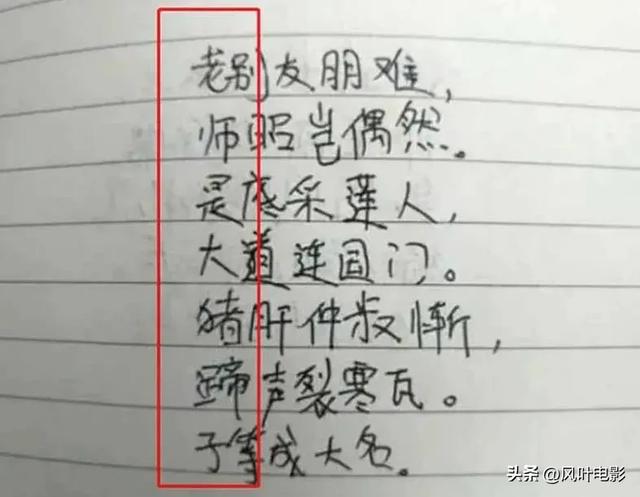 老别友朋难，
师昭岂偶然。
是底采莲人，
大道连国门。
猪肝仲叔惭，
蹄声裂寒瓦。
子等成大名。
头条 @风叶电影